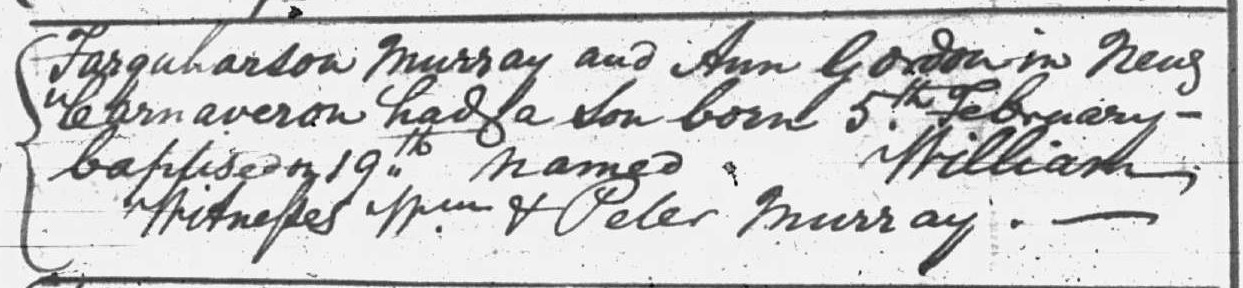 Farquharson Murray and Ann Gordon in Neug
"Carnaveron had a Son born 5.th February -
baptised on 19.th named William,
Witnesses Wm. & Peter Murray. —